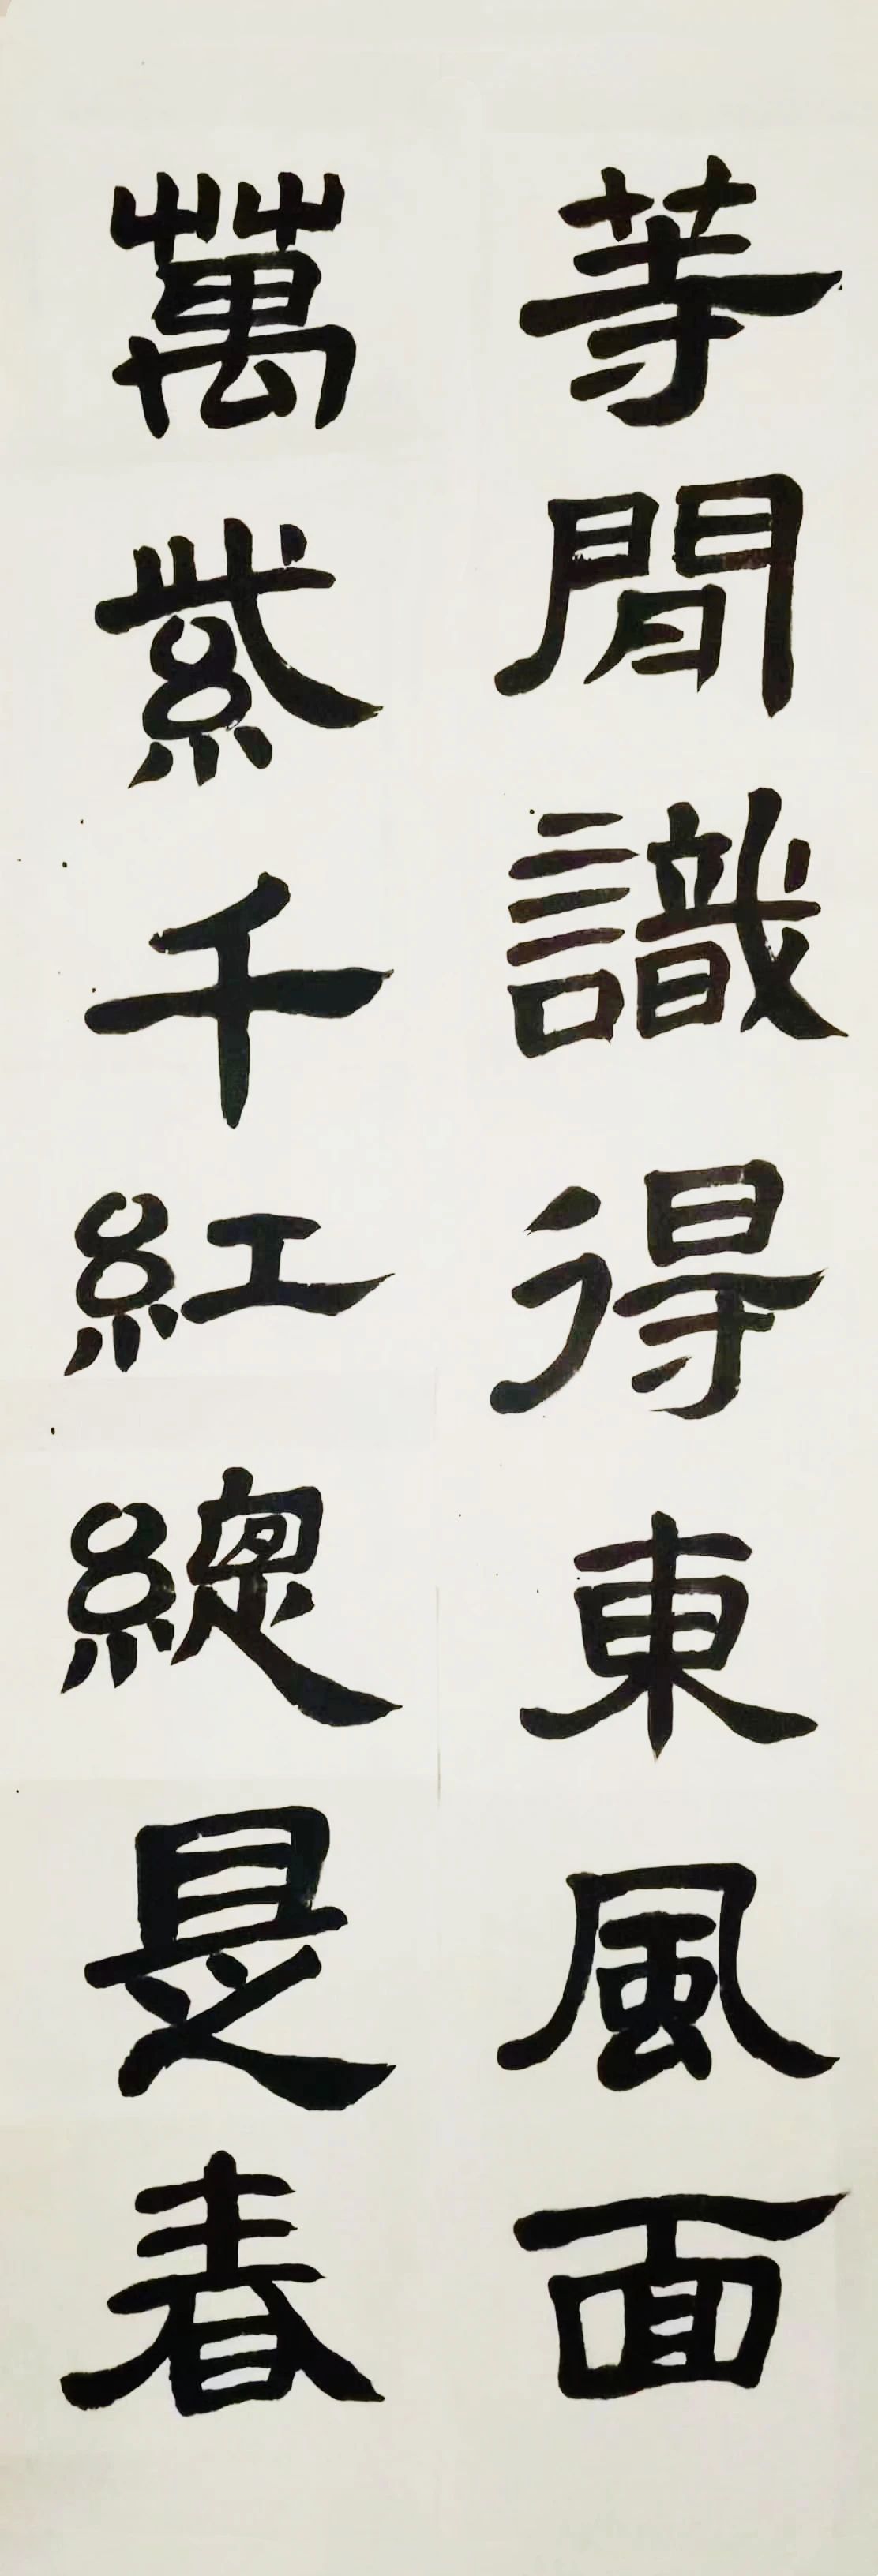 等間識得東風面
萬紫千紅總是春